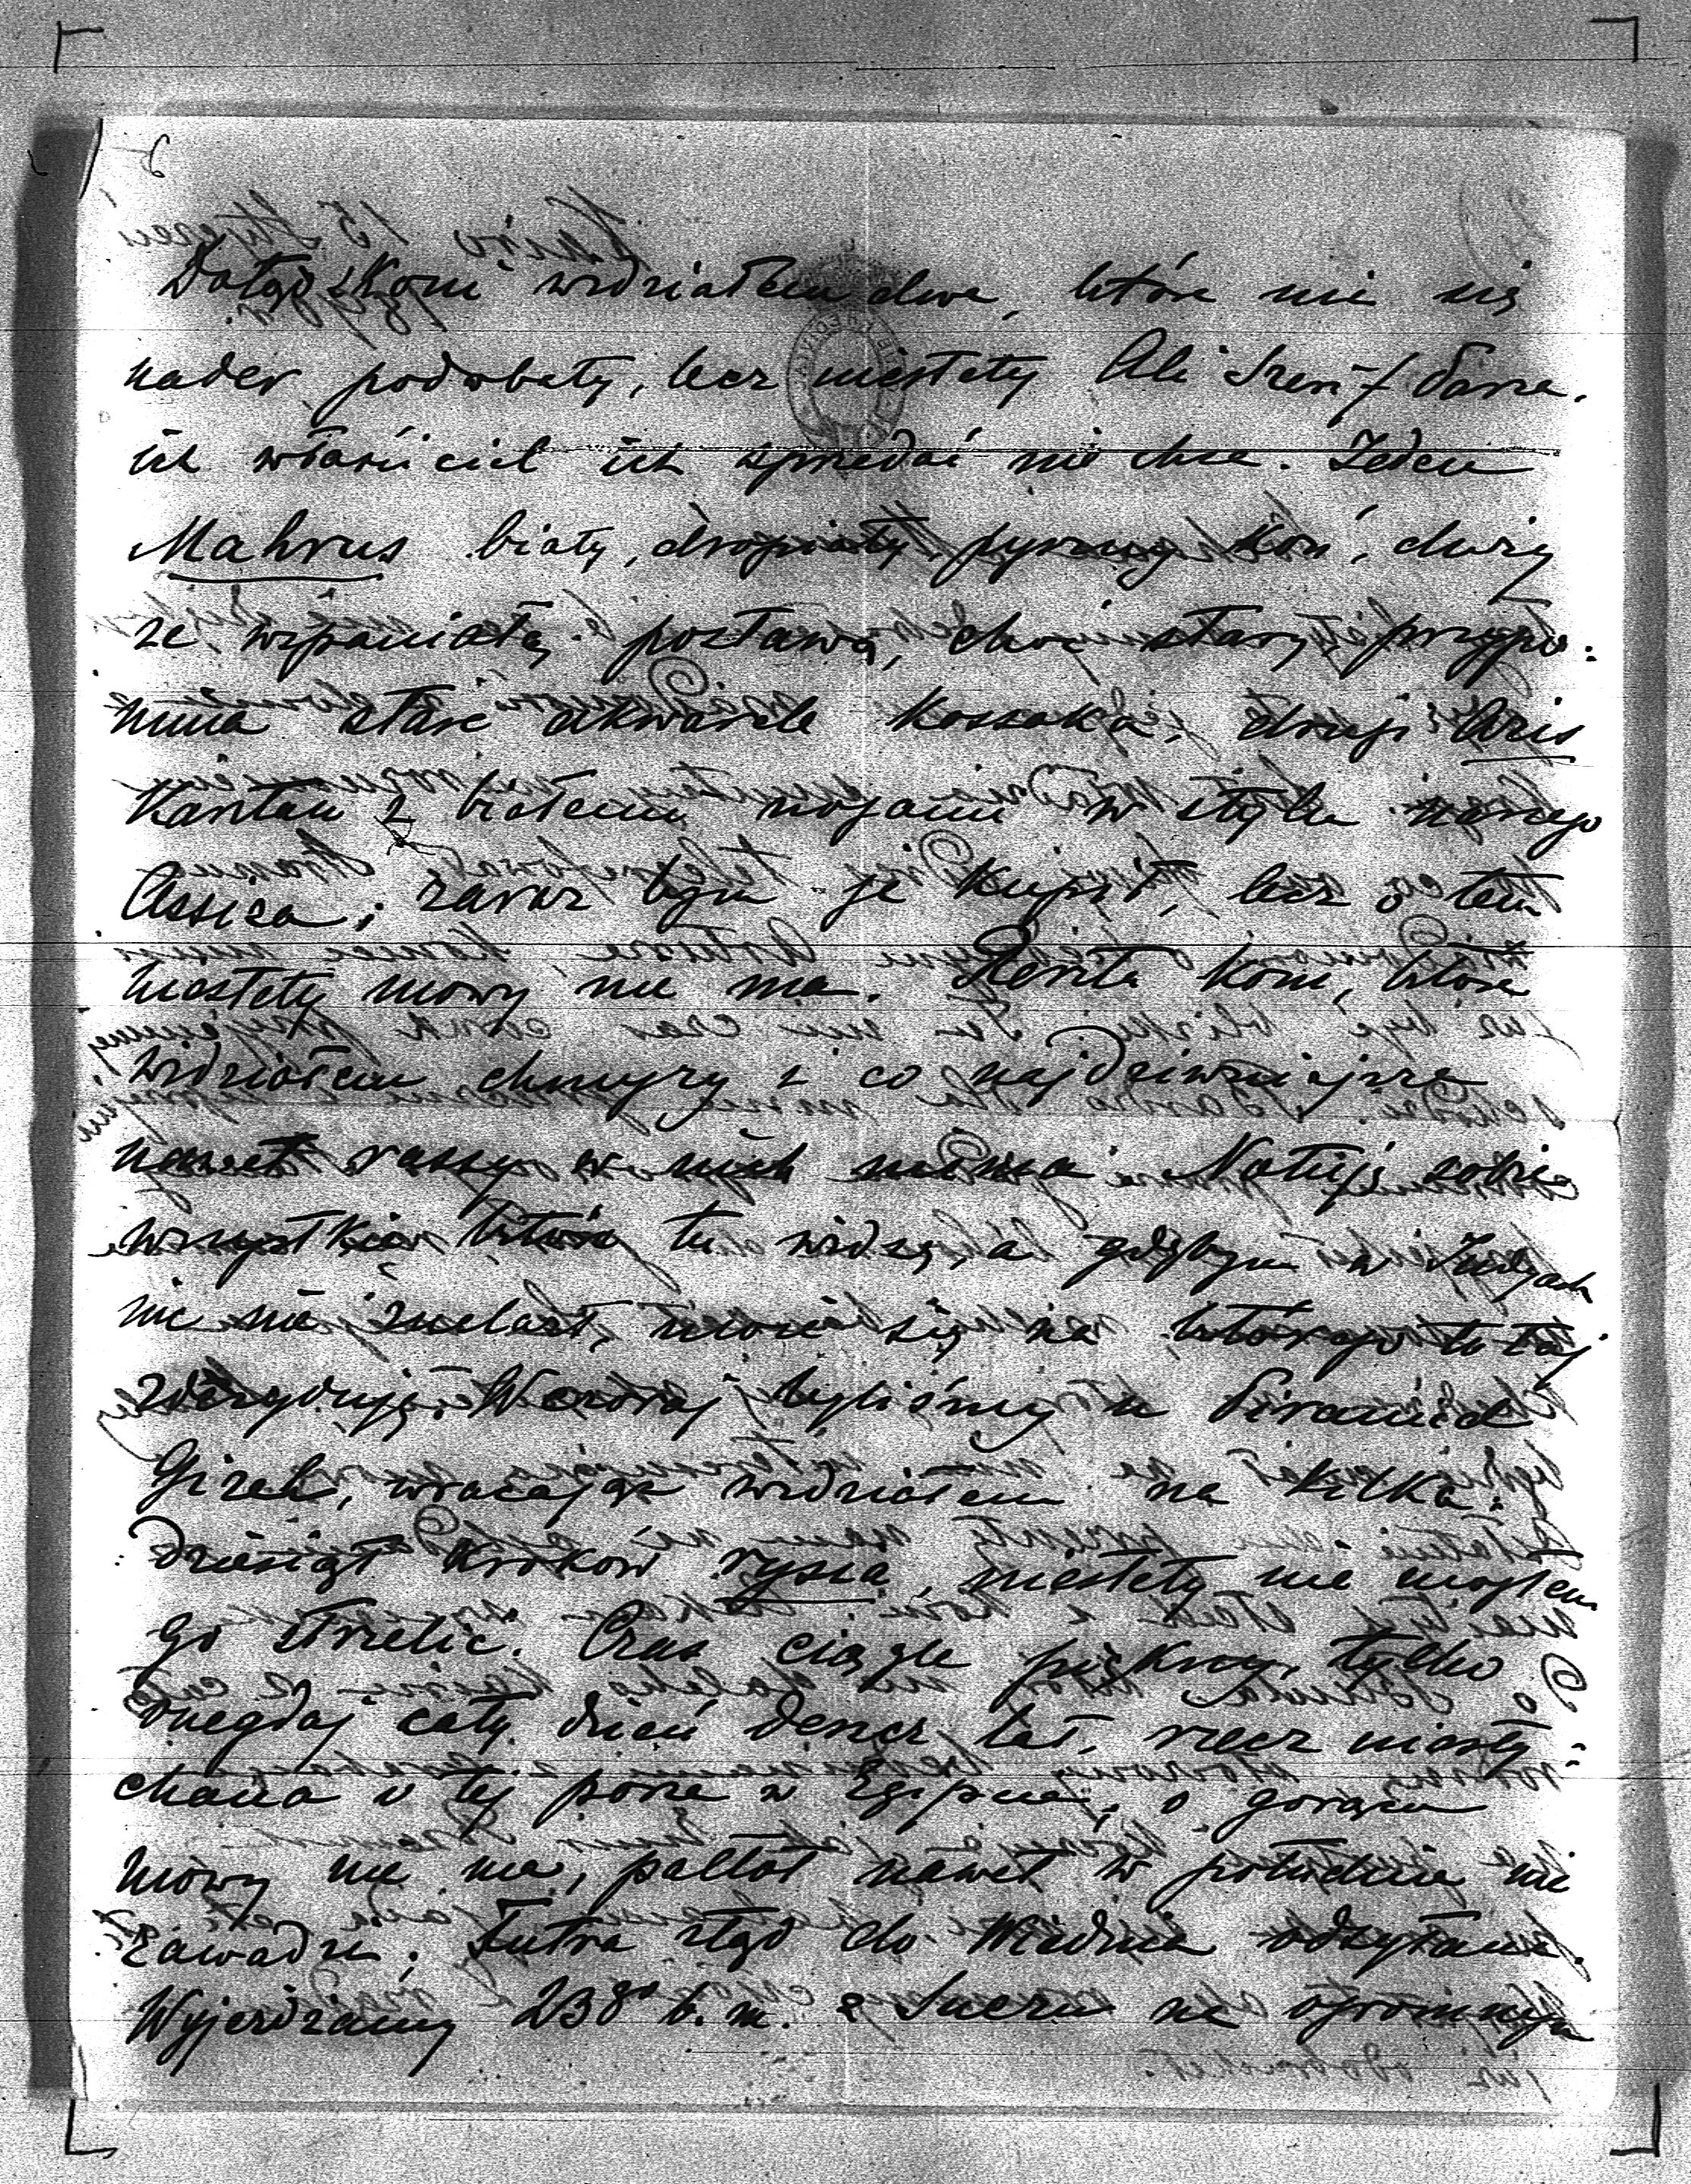 Dotąd koni widziałem dwa, które mi się
nader podobały, lecz niestety Ali Szerif Pasza,
ich właściciel ich sprzedać nie chce. Jeden
Mahrus biały, dropiaty pyszny koń, duży
ze wspaniałą postawą, choć stary przypo:
mina stare akwarele Kossaka; drugi Azis
Kasztan z białemi nogami w stylu naszego
Assisa; zaraz bym je kupił, lecz o tem
niestety mowy nie ma. Reszta koni, które
widziałem chmyzy i co najdziwniejsze
nawet rassy w nich niema. Notuję sobie
wszystkie które tu widzę, a gdybym w Indyach
nic nie znalazł, może się na którego tutaj
zdecyduję. Wczoraj byliśmy u Piramid
Gizeh, wracając widziałem na kilka:
dziesiąt kroków rysia, niestety nie mogłem
go strzelić. Czas ciągle piękny, tylko
onegdaj cały dzień deszcz lał, rzecz niesły:
chana o tej porze w Egipcie; o gorącu
mowy nie ma, paltot nawet w południe nie
zawadza; Futra stąd do Wiednia odsyłamy.
Wyjeżdżamy 23go b. m. z Suezu na ogromnym